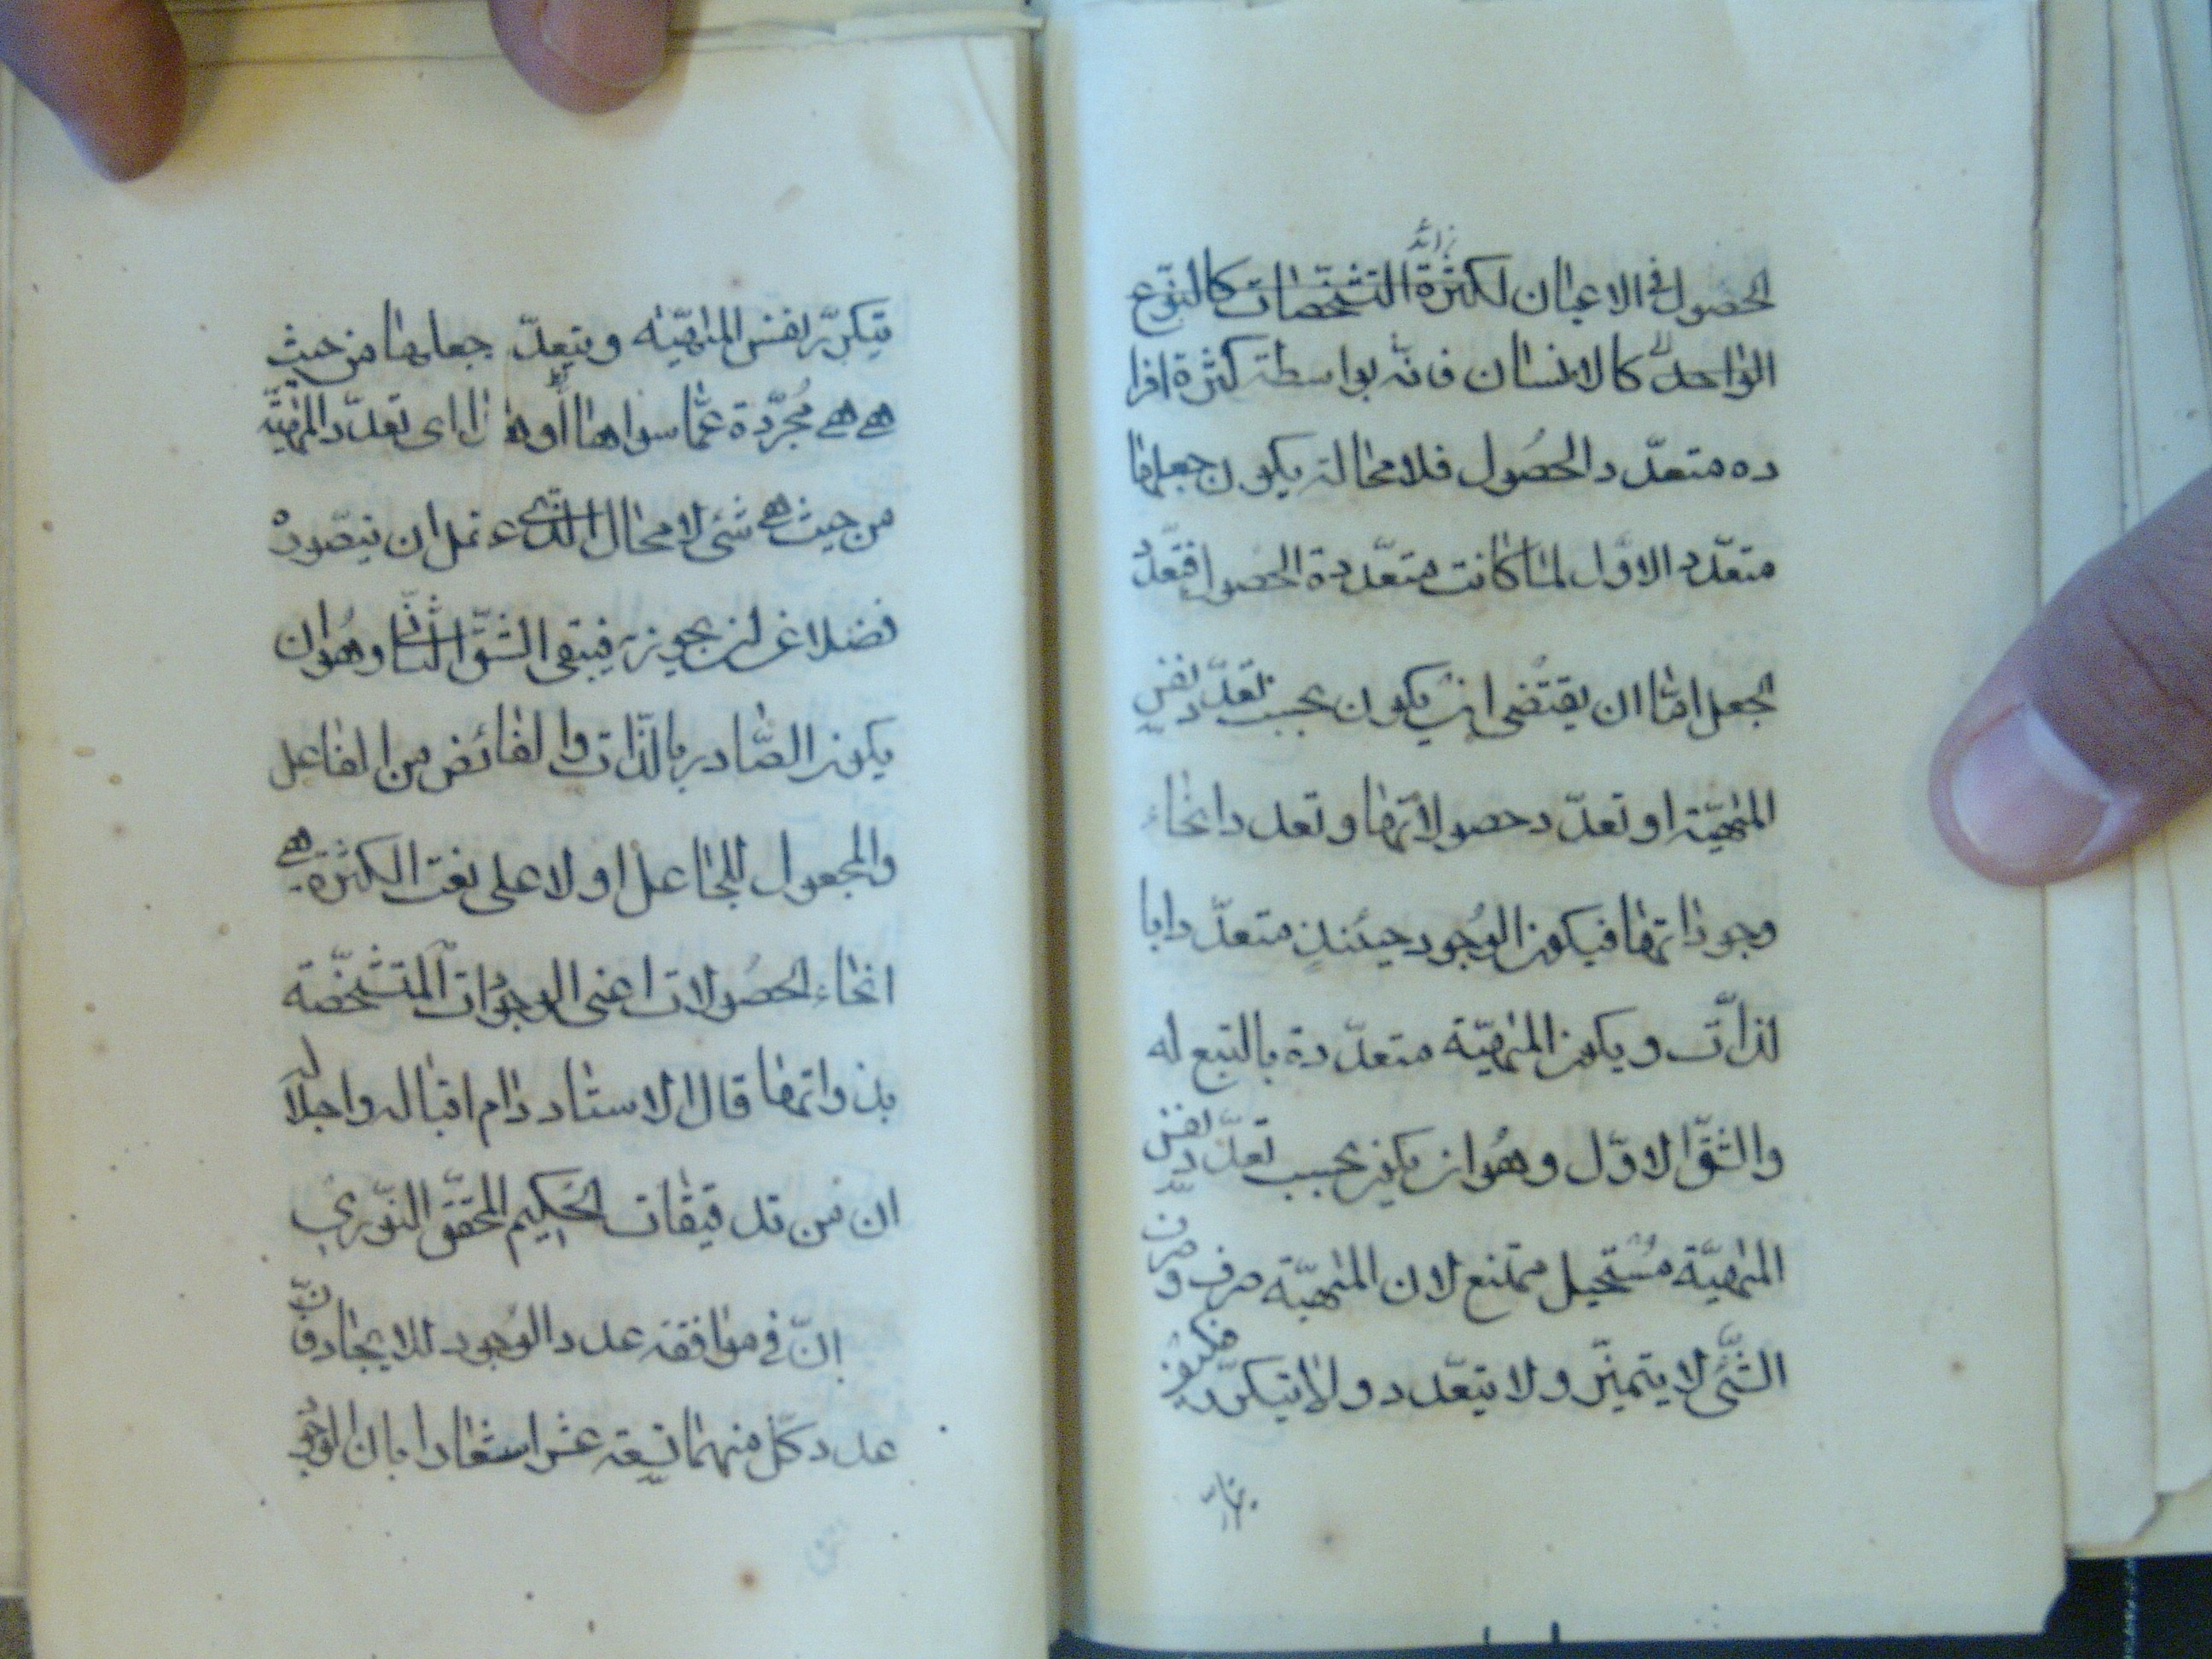 الحصول فی الاعیان لکثرة التشخصات کالنوع
زائد
الواحد کالانسان فانه بواسطة کثرة افرا
ده متعدّد الحصُول فلا محالة یکون جعلها
متعدّد الاوّل لما کانت متعدّدة الحصول فتعدّد
الجعل امّا ان یقتضی ان یکون بحسب تعدّد نفس
المٰهیّة او تعدّد حصولاتها و تعدد انحاء
وجوداتها فیکون الوجود حینئذٍ متعدّدا با
لذّات و یکون المٰهیّة متعدّدة بالتبع له
والشّقّ الاوّل وهُو ان یکون بحسب تعدّد نفس
المٰهیّة مُستحیل ممتنع لان المٰهیّة صرف و صرف
الشّیٔ لا یتمیّز ولا یتعدّد ولا یتکرّر فکیف
یتکرّر نفس المٰهیّة و یتعدّد جعلها من حیث
هی هی مُجرّدة عمّا سواها اوهٰذا ای تعدّد المٰهیّة
من حیث هی شئی لا محال لذی عقل ان یتصّوره
فضلا عن ان یجوزه فیبقی الشّقّ الثّانی وهُو ان
یکون الصّادر بالذّات والفائض من الفاعل
والمجعول للجاعل اولا علی نعت الکثرة هی
انحاء الحصُولات اعنی الوجوٰدات المتشخّصة
بذواتها قال الاستاد دام اقباله و اجلاله
ان من تدقیقات الحکیم المحقّق النّوری
انّ فی موافقة عدد الوُجود للایجاد فانّ
عدد کلّ منهما تسعة عشر اشعارا بان الوجود